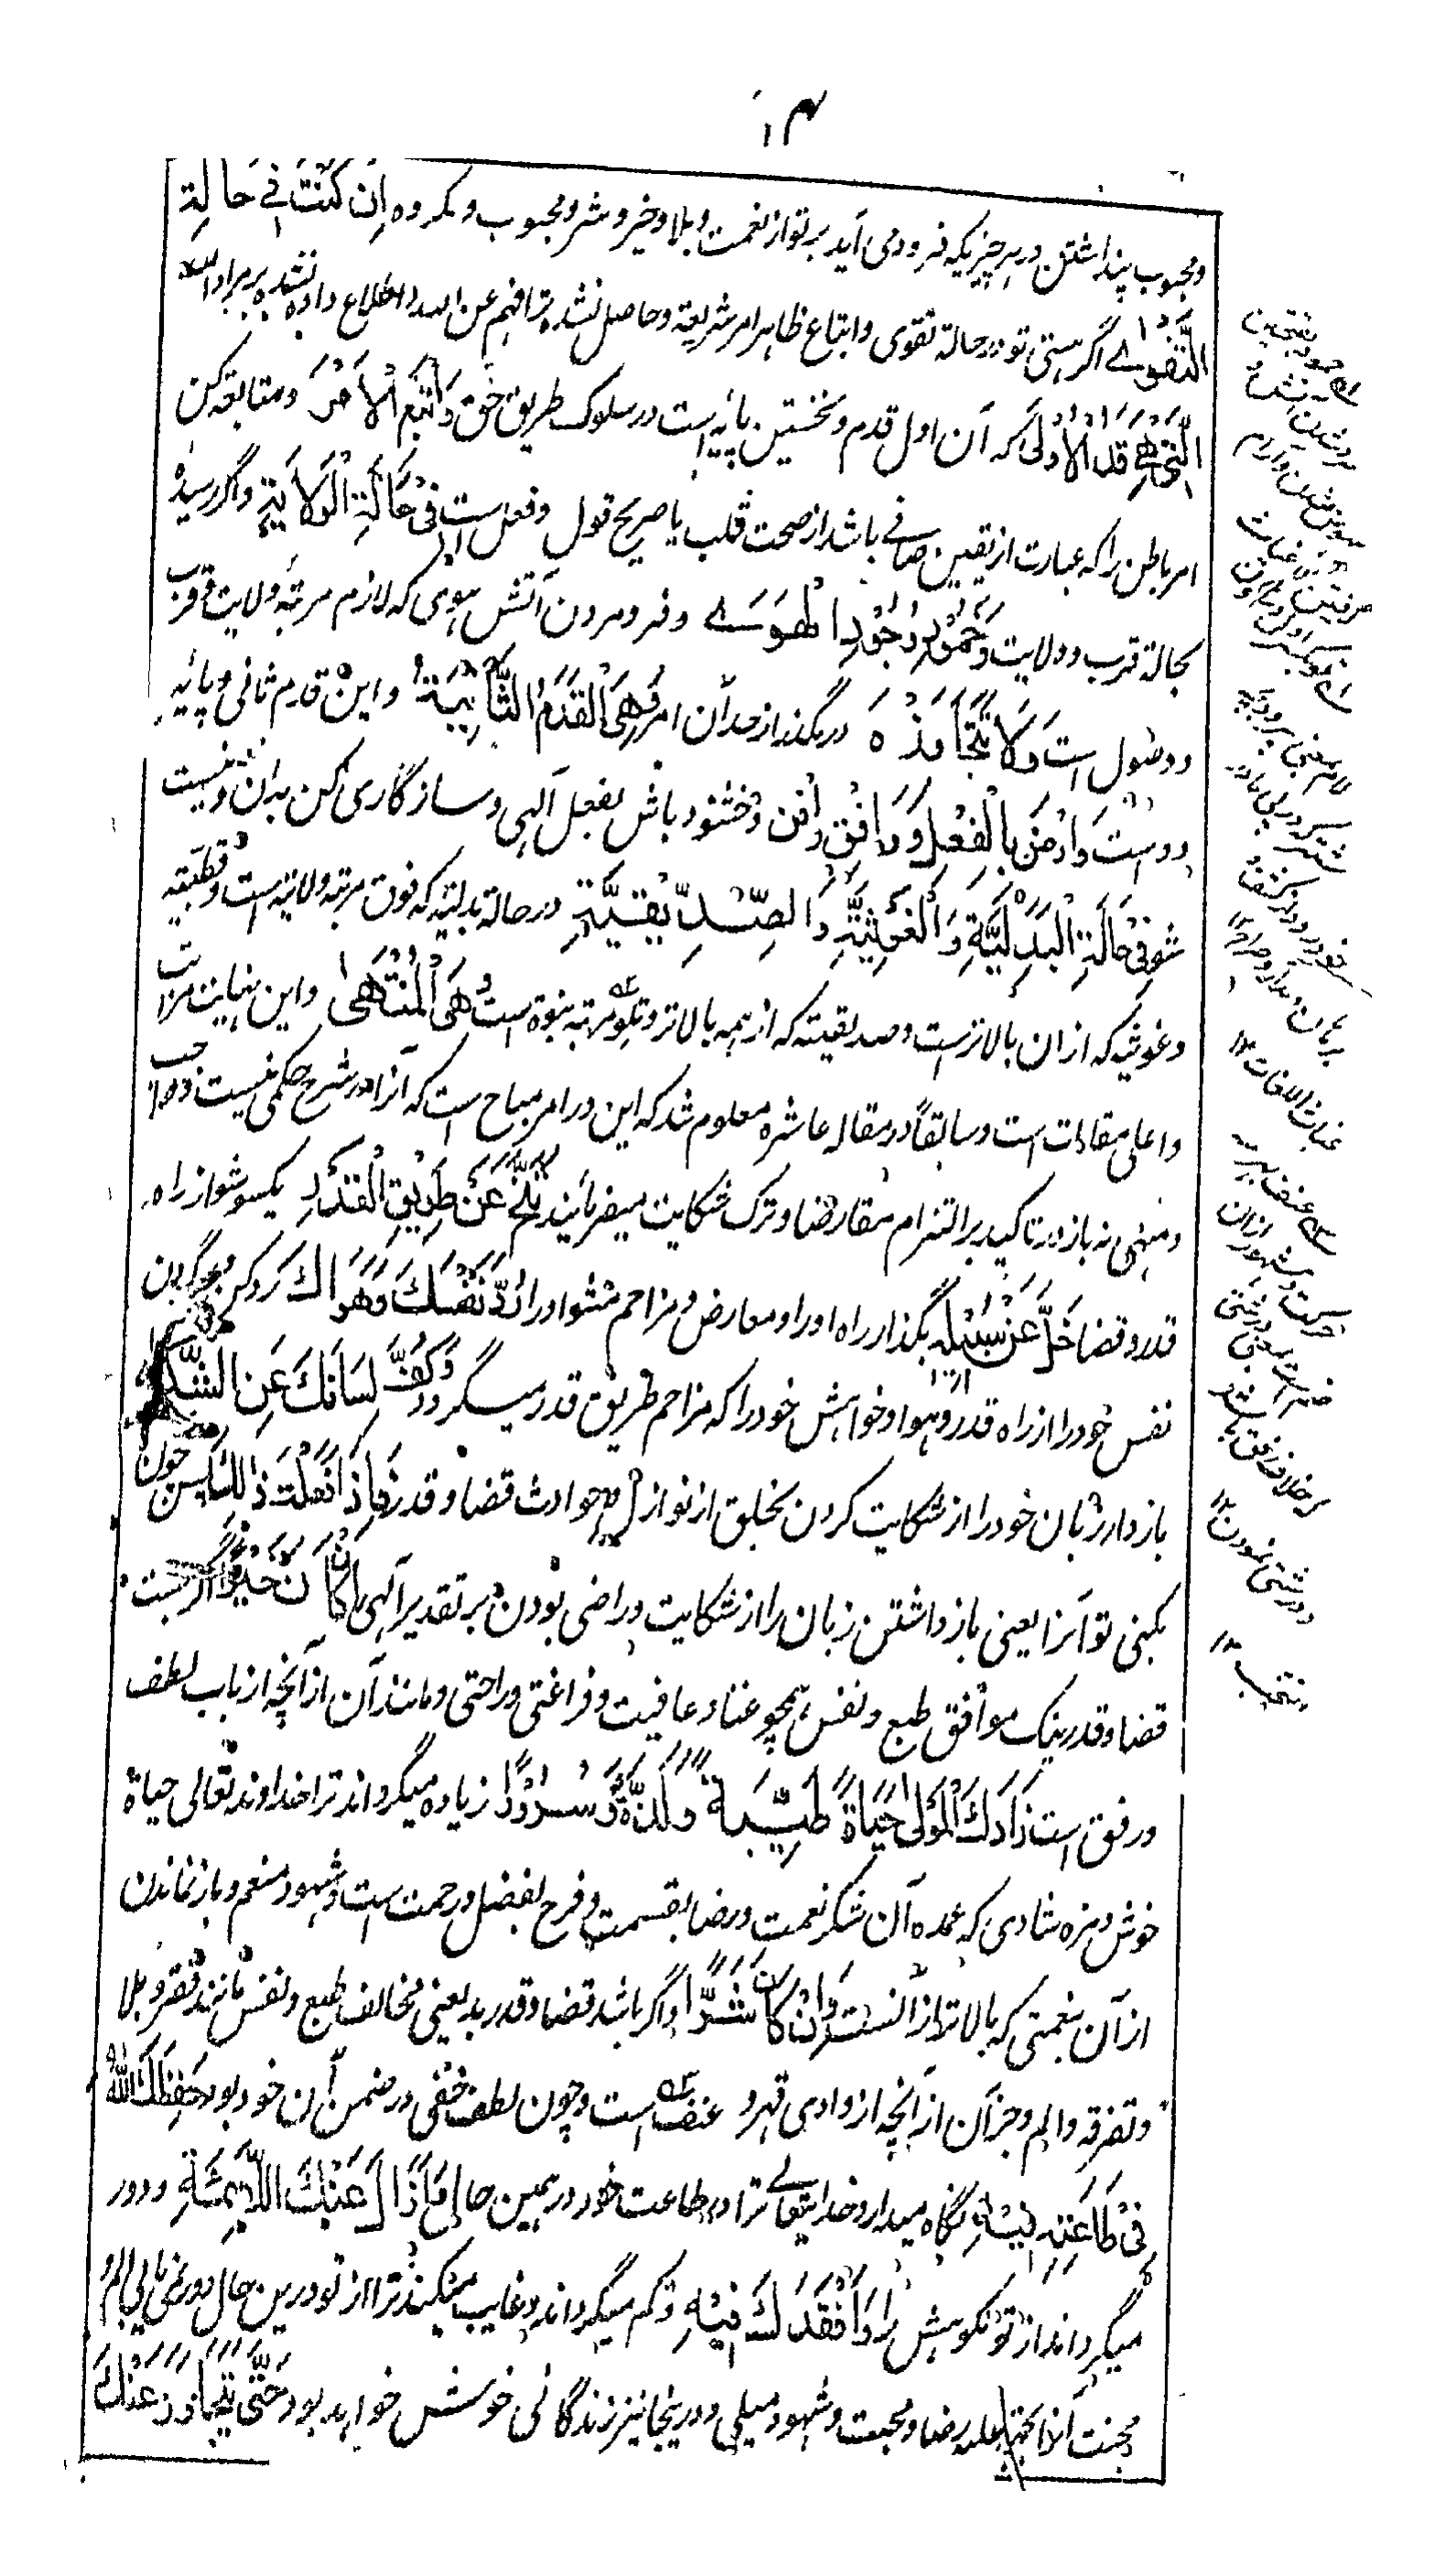 ۱۰۴
ومحبوب پنداشتن در هر چیزیکه فرود می آید بر تو از نعمت و بلا و خیر و شر و محبوب و مکروه اِنْ کُنْتَ فِیْ حَالَةِ
التَّقْوٰے اگر هستی تو در حالة تقوی و اتباع ظاهر امر شریعة و حاصل نشده ترا فهم عن الله و اطلاع داده نشده بر مراد الله
الَّتِیْ هِیَ الْقَدَمُ الْاُوْلٰی که آن اول قدم و نخستین پایه است در سلوک طریق حق وَاتَّبِعِ الْاَمْرَ و متابعة کن
امر باطن را که عبارت از یقین صافے باشد از صحت قلب یا صریح قول و فعل است فِیْ حَالَةِ الْوَلَایَةِ واگر رسیدهٔ
بحالة قرب و ولایت وَخُمُوْدِ وُجُوْدِ الْهَوٰے و فرو مردن آتش هوی که لازم مرتبهٔ ولایت و قرب
و وصول است وَلَا تَتَجَاوَزْهُ و در مگذر از حد آن امر وَهِیَ الْقَدَمُ الثَّانِیَةُ و این قدم ثانی و پایهٔ
دوم ست وَارْضَ بِالْفِعْلِ وَوَافِقْ وَافْنَ و خشنود باش بفعل آلهی و سازگاری کن بدان و نیست
شو فِیْ حَالَةِ الْبَدَلِیَّةِ وَالْغَوْثِیَّةِ وَالصِّدِّیْقِیَّةِ در حالة بدلیه که فوق مرتبهٔ ولایة است و قطبیه
و غوثیه که از ان بالاترست و صدیقیته که از همه بالاتر و تلو مرتبه نبوة است وَهِیَ الْمُنْتَهٰی و این نهایت مراتب
و اعلی مقامات است و سابقاً در مقاله عاشره معلوم شد که این در امر مباح است که آنرا در شرع حکمی نیست نه واجب
و منهی نه باز در تاکید بر التزام مقام رضا و ترک شکایت میفرمایند تَنَحَّ عَنْ طَرِیْقِ الْقَدَرِ یکسو شو از راه
قدر و قضا خَلِّ عَنْ سَبِیْلِهِ بگذار راه او را و معارض و مزاحم مشو او را رُدَّ نَفْسَكَ وَهَوَاكَ رد کن و برگردان
نفس خود را از راه قدر و هوا و خواهش خود را که مزاحم طریق قدر میگردد وَکُفَّ لِسَانَكَ عَنِ الشَّکْوٰی
باز دار زبان خود را از شکایت کردن بخلق از نوازل و حوادث قضا و قدر فَاِذَا فَعَلْتَ ذٰلِكَ پس چون
بکنی تو آنرا یعنی باز داشتن زبان را از شکایت و راضی بودن بر تقدیر آلهی اِنْ کَانَ خَیْرًا اگر هست
قضا و قدر نیک موافق طبع و نفس همچو غنا و عافیت و فراغتی و راحتی و مانند آن از آنچه از باب لطف
و رفق است زَادَكَ الْمَوْلٰی حَیَاةً طَیِّبَةً وَلَذَّةً وَسُرُوْرًا زیاده میگرداند ترا خداوند تعالی حیاة
خوش و مزه شادی که عمده آن شکر نعمت و رضا بقسمت و فرح بفضل و رحمت است و شهود منعم و باز نماندن
از آن بنعمتی که بالاتر از آنست وَاِنْ کَانَ شَرًّا و اگر باشد قضا و قدر بد یعنی مخالف طبع و نفس مانند فقر و بلا
و تفرقه و الم و جز آن از آنچه از وادی قهر و عنف است و چون لطف خفی در ضمن آن خود بود حَفِظَكَ اللهُ
فِیْ طَاعَتِهِ فِیْهِ نگاه میدارد خدایتعالے ترا در طاعت خود در همین حال وَاَزَالَ عَنْكَ اللَّائِمَةَ و دور
میگرداند از تو نکوهش را وَاَفْقَدَكَ فِیْهِ و گم میگرداند و غایب میکند ترا از تو درین حال و در نمی یابی الم و
محنت آنرا بجهة غلبهٔ رضا و محبت و شهود مبلی و در ینجا نیز زندگانی خوش خواهد بود حَتّٰی یَتَجَاوَزَ عَنْكَ
غیاث اللغات ۱۲
منتخب ۱۲